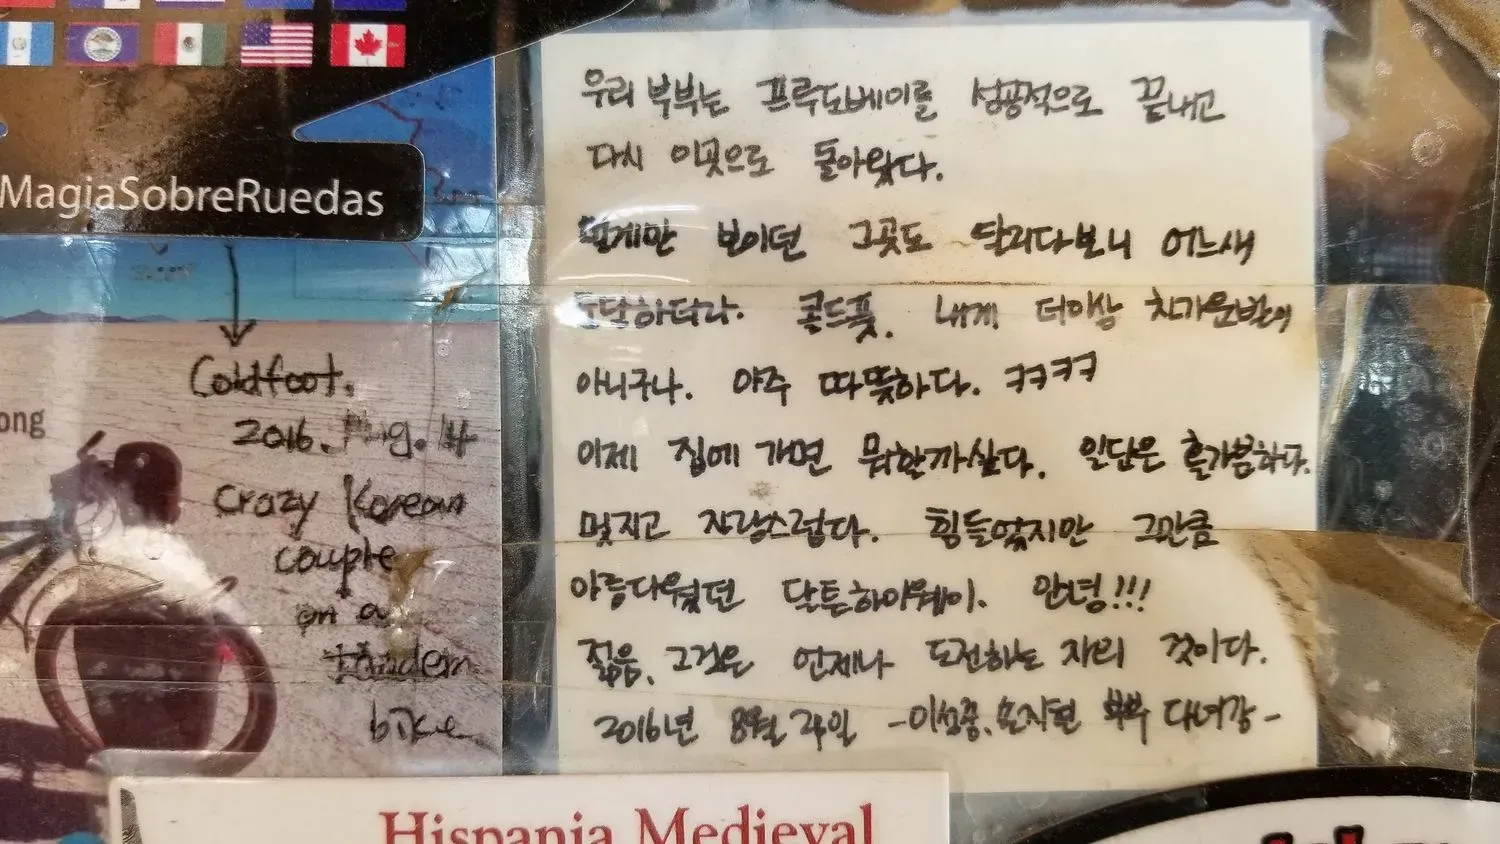 MagiaSobreRuedas
ong
Coldfoot.
2016. Aug. 14
Crazy Korean
couple
on a
tandem
bike
우리 부부는 프루도베이를 성공적으로 끝내고
다시 이곳으로 돌아왔다.
멀게만 보이던 그곳도 달리다보니 어느새
도달하더라. 콜드풋. 내게 더이상 차가운발이
아니구나. 아주 따뜻하다. ㅋㅋㅋㅋ
이제 집에 가면 뭐한까싶다. 일단은 홀가분하다.
멋지고 자랑스럽다. 힘들었지만 그만큼
아름다웠던 달톤하이웨이. 안녕!!!
젊음. 그것은 언제나 도전하는 자의 것이다.
2016년 8월 24일 -이성종, 손지현 부부 다녀감-
Hispania Medieval